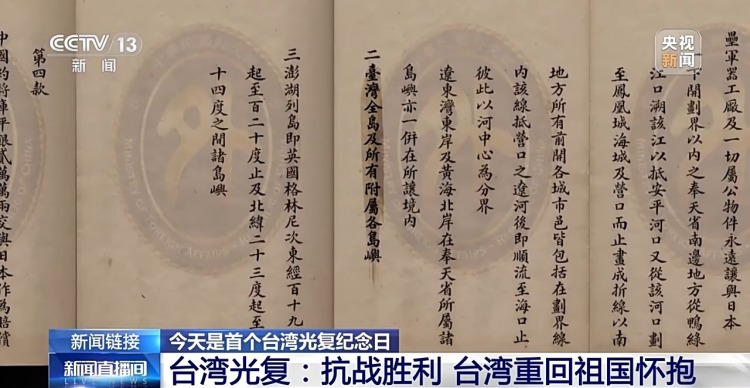 CCTV 13
新闻
央视
新闻
壘軍器工廠及一切屬公物件永遠讓與日本
下開劃界以內之奉天省南邊地方從鴨綠
江口溯該江以抵安平河口又從該河口劃
至鳳凰城海城及營口而止畫成折線以南
地方所有前開各城市邑皆包括在劃界線
內該線抵營口之遼河後即順流至海口止
彼此以河中心為分界
遼東灣東岸及黃海北岸在奉天省所屬諸
島嶼亦一併在所讓境內
二臺灣全島及所有附屬各島嶼
三澎湖列島即英國格林尼次東經百十九
起至百二十度止及北緯二十三度起至
十四度之間諸島嶼
第四款
中國約將庫平銀貳萬萬兩交與日本作為賠償
新闻链接 今天是首个台湾光复纪念日
新闻直播间 台湾光复：抗战胜利 台湾重回祖国怀抱